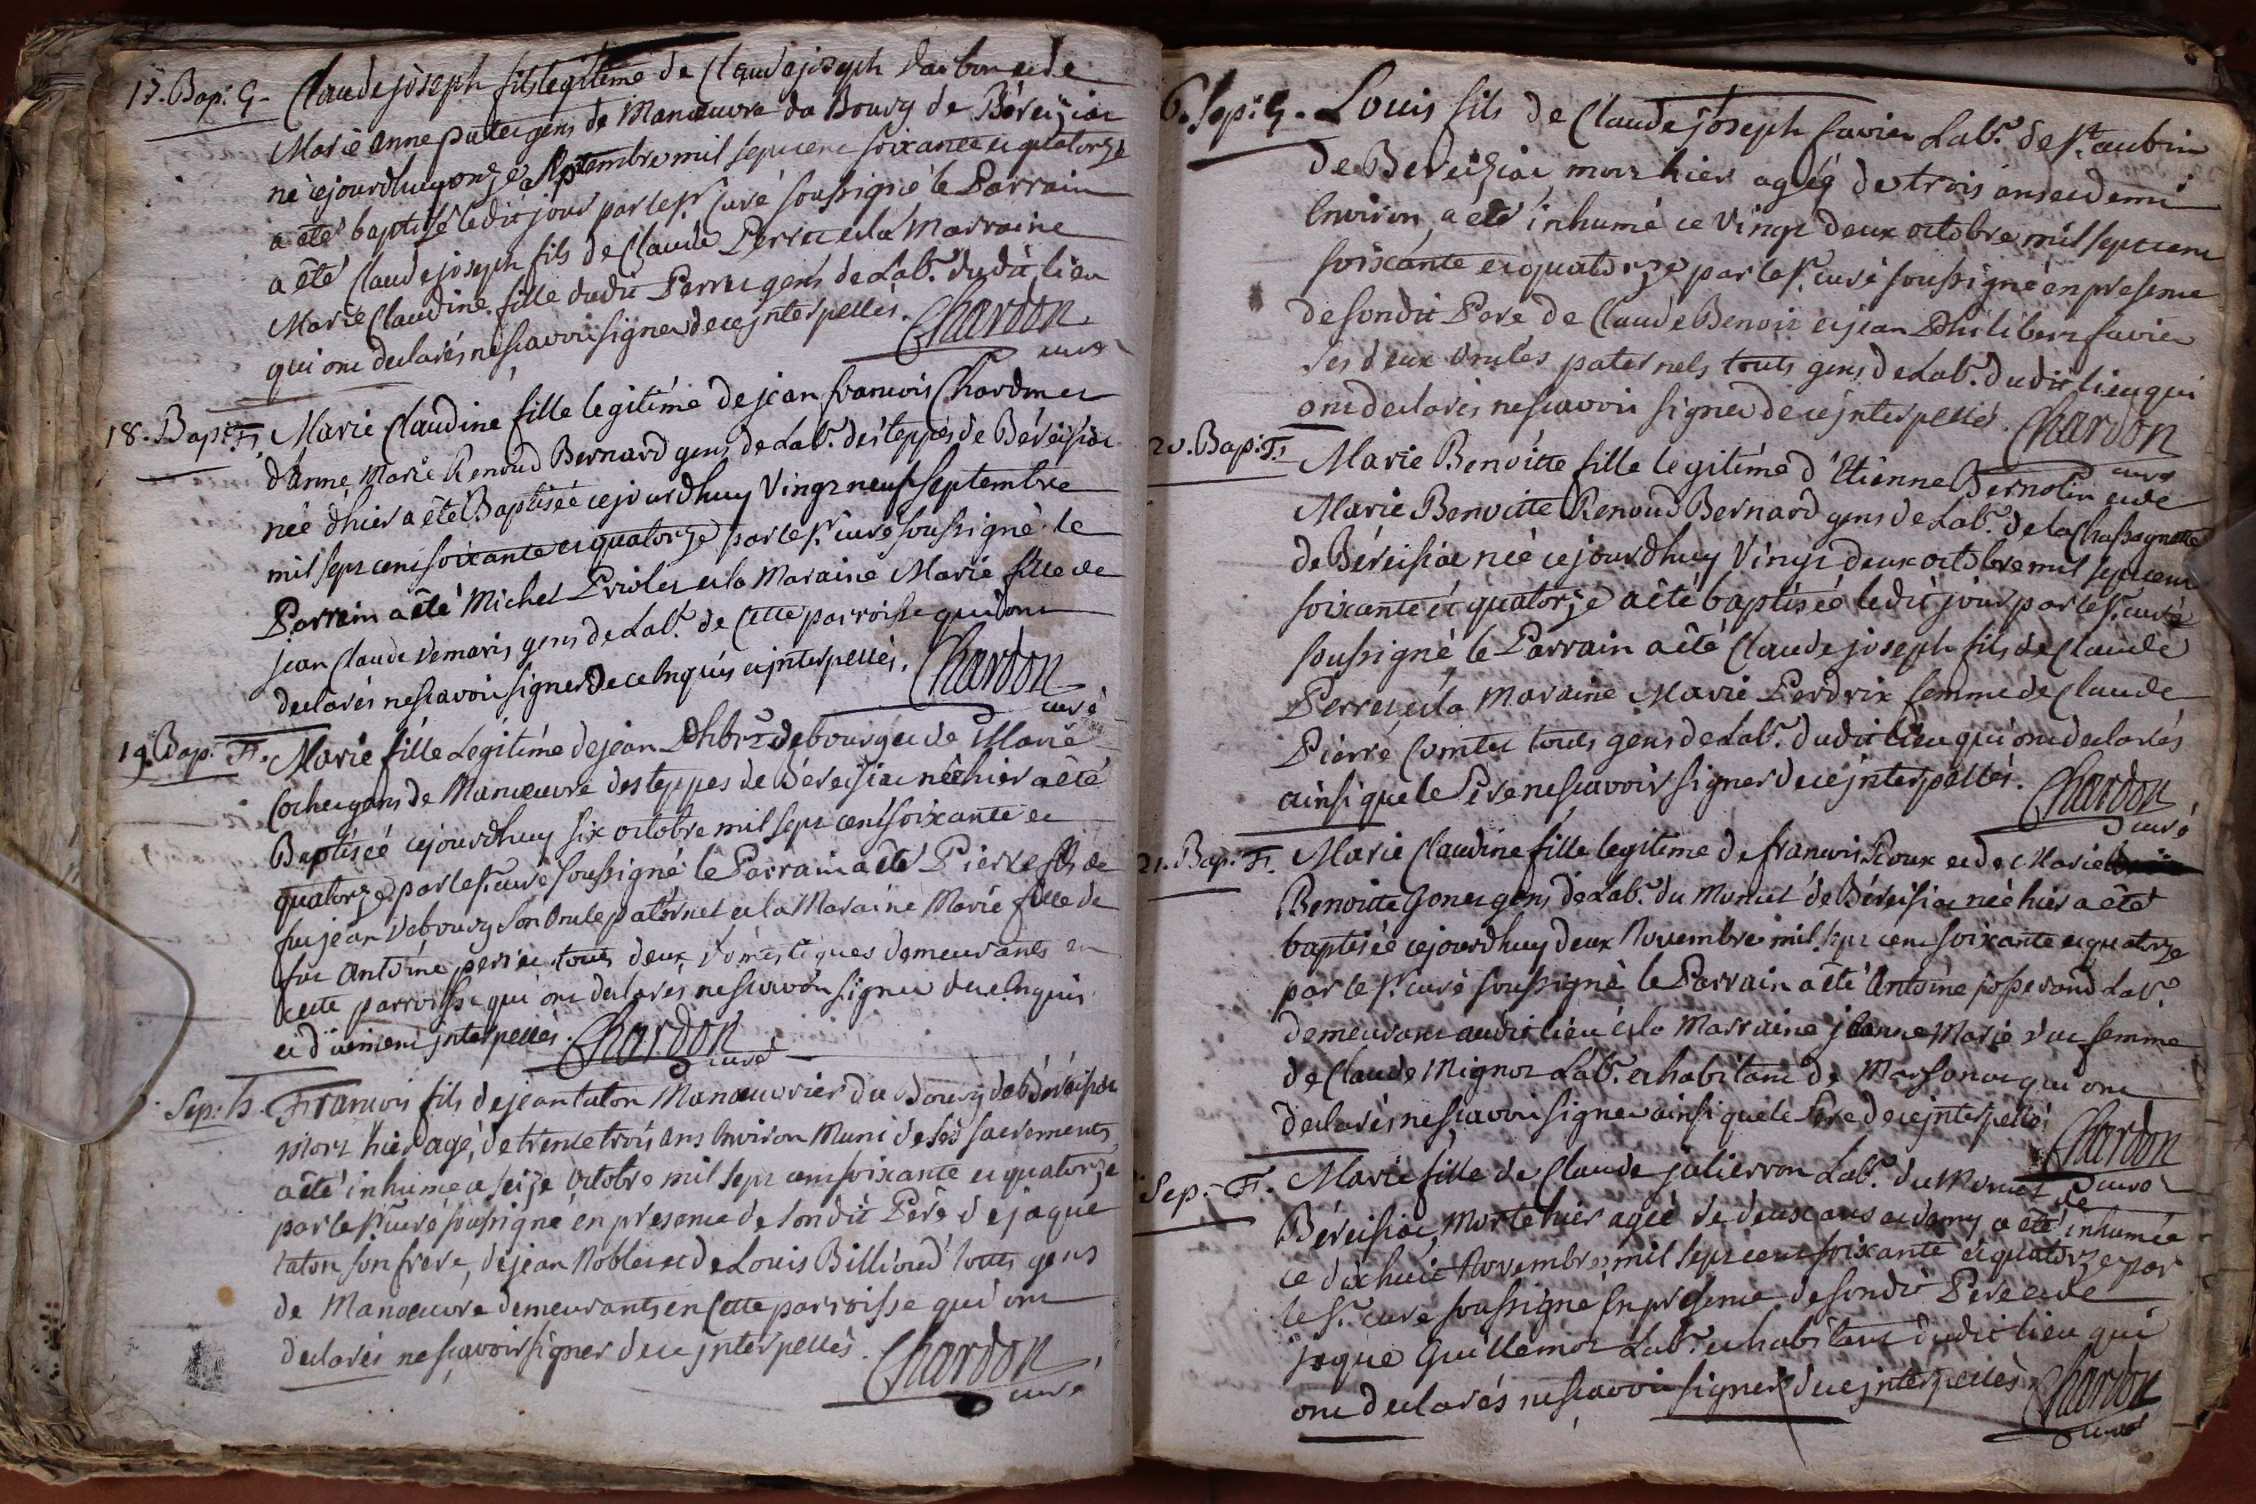 17. Bap: G. Claude joseph fils legitime de Claude joseph Varbon et de
Marie Anne putet gens de Manœuvre du Bourg de Béreiziat
né cejourdhuy onze septembre mil sept cent soixante et quatorze
a êté baptisé ledit jour par le Sr. Curé soussigné le Parrain
a êté Claude joseph fils de Claude Perret et la Marraine
Marie Claudine fille dudit Perret gens de Lab.r dudit lieu
qui ont declarés ne sçavoir signer de ce jnterpellés. Chardon
curé
18. Bap: F. Marie Claudine fille legitime de jean francois Chardinet
d'Anne Marie Renoud Bernard gens de Lab.r des teppes de Béreisiat
née d'hier a êté Baptisée cejourdhuy Vingt neuf Septembre
mil sept cent soixante et quatorze par le Sr. curé soussigné le
Parrain a êté Michel Priolet et la Maraine Marie fille de
jean Claude Demaris gens de Lab.r de Cette parroisse qui ont
declarés ne sçavoir signer de ce Enquis et jnterpellés. Chardon
curé
19. Bap: F. Marie fille Legitime de jean Phbrt. debourg et de Marie
Cochet gens de Manœuvre des teppes de Béreisiat née hier a êté
Baptisée cejourdhuy six octobre mil sept cent soixante et
quatorze par le Sr. curé soussigné le Parrain a êté Pierre fils de
feu jean Debourg son Oncle paternel et la Maraine Marie fille de
feu Antoine perret tous deux Domestiques demeurants en
cette parroisse qui ont declarés ne sçavoir signer de ce Enquis
et düement jnterpellés. Chardon
curé
Sep: G. Francois fils de jean taton Manœuvrier du Bourg de Béreisiat
mort hier agé de trente trois ans Environ Muni de ses sacrements
a êté inhumé ce seize Octobre mil sept cent soixante et quatorze
par le Sr. curé soussigné en presence de sondit Pere de jaque
taton son frere, de jean Noblet et de Louis Billioud touts gens
de Manœuvre demeurants en Cette parroisse qui ont
declarés ne sçavoir signer de ce jnterpellés. Chardon
curé
6. Sep: G. Louis fils de Claude joseph favier Lab.r de St. aubin
de Bereiziat mort hier agé de trois ans et demi
Environ, a êté inhumé ce Vingt deux octobre mil sept cent
soixante et quatorze par le Sr. curé soussigné en presence
de sondit Pere de Claude Benoit et jean Philibert favier
ses deux Oncles paternels touts gens de Lab.r dudit lieu qui
ont declarés ne sçavoir signer de ce jnterpellés. Chardon
curé
20. Bap: F. Marie Benoitte fille legitime d'Etienne Bernolin et de
Marie Benoitte Renoud Bernard gens de Lab.r de la Chassagnette
de Béreisiat née cejourdhuy Vingt deux octobre mil sept cent
soixante et quatorze a êté baptisée ledit jour par le Sr. curé
soussigné, le Parrain a êté Claude joseph fils de Claude
Perret et la Maraine Marie Perdrix femme de Claude
Pierre Comtet touts gens de Lab.r dudit lieu qui ont declarés
ainsi que le Pere ne sçavoir signer de ce jnterpellés. Chardon
curé
21. Bap: F. Marie Claudine fille legitime de francois Roux et de Marie
Benoitte Gonet gens de Lab.r du Moncet de Béreisiat née hier a êté
baptisée cejourdhuy deux Novembre mil sept cent soixante et quatorze
par le Sr. curé soussigné le Parrain a êté Antoine Josserand Lab.r
demeurant audit lieu et la Marraine jeanne Marie Duc femme
de Claude Mignot Lab.r et habitant de Marsonat qui ont
declarés ne sçavoir signer ainsi que le Pere de ce jnterpellés
Chardon
curé
Sep: F. Marie fille de Claude julierron Lab.r du Moncet de
Béreisiat, Morte hier agée de deux ans et demy a êté inhumée
ce dix huit Novembre mil sept cent soixante et quatorze par
le Sr. curé soussigné En presence de sondit Pere et de
jaque Guillemot Lab.r et habitant dudit lieu qui
ont declarés ne sçavoir signer de ce jnterpellés Chardon
curé